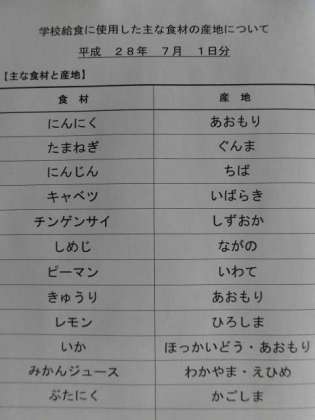 学校給食に使用した主な食材の産地について
平成 28年 7月 1日分
【主な食材と産地】
食 材 産 地
にんにく あおもり
たまねぎ ぐんま
にんじん ちば
キャベツ いばらき
チンゲンサイ しずおか
しめじ ながの
ピーマン いわて
きゅうり あおもり
レモン ひろしま
いか ほっかいどう・あおもり
みかんジュース わかやま・えひめ
ぶたにく かごしま